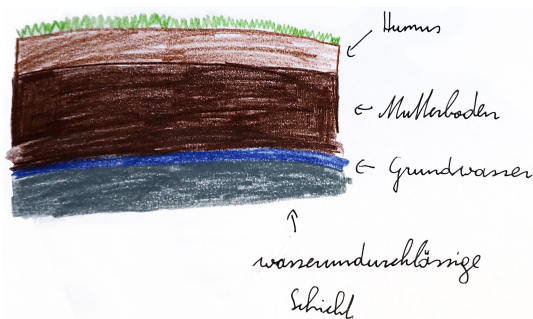 Humus
Mutterboden
Grundwasser
wasserunduschlässige
Schicht